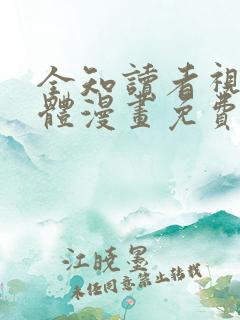 全知讀者視
體漫畫免費
江晓墨
未经同意禁止转载